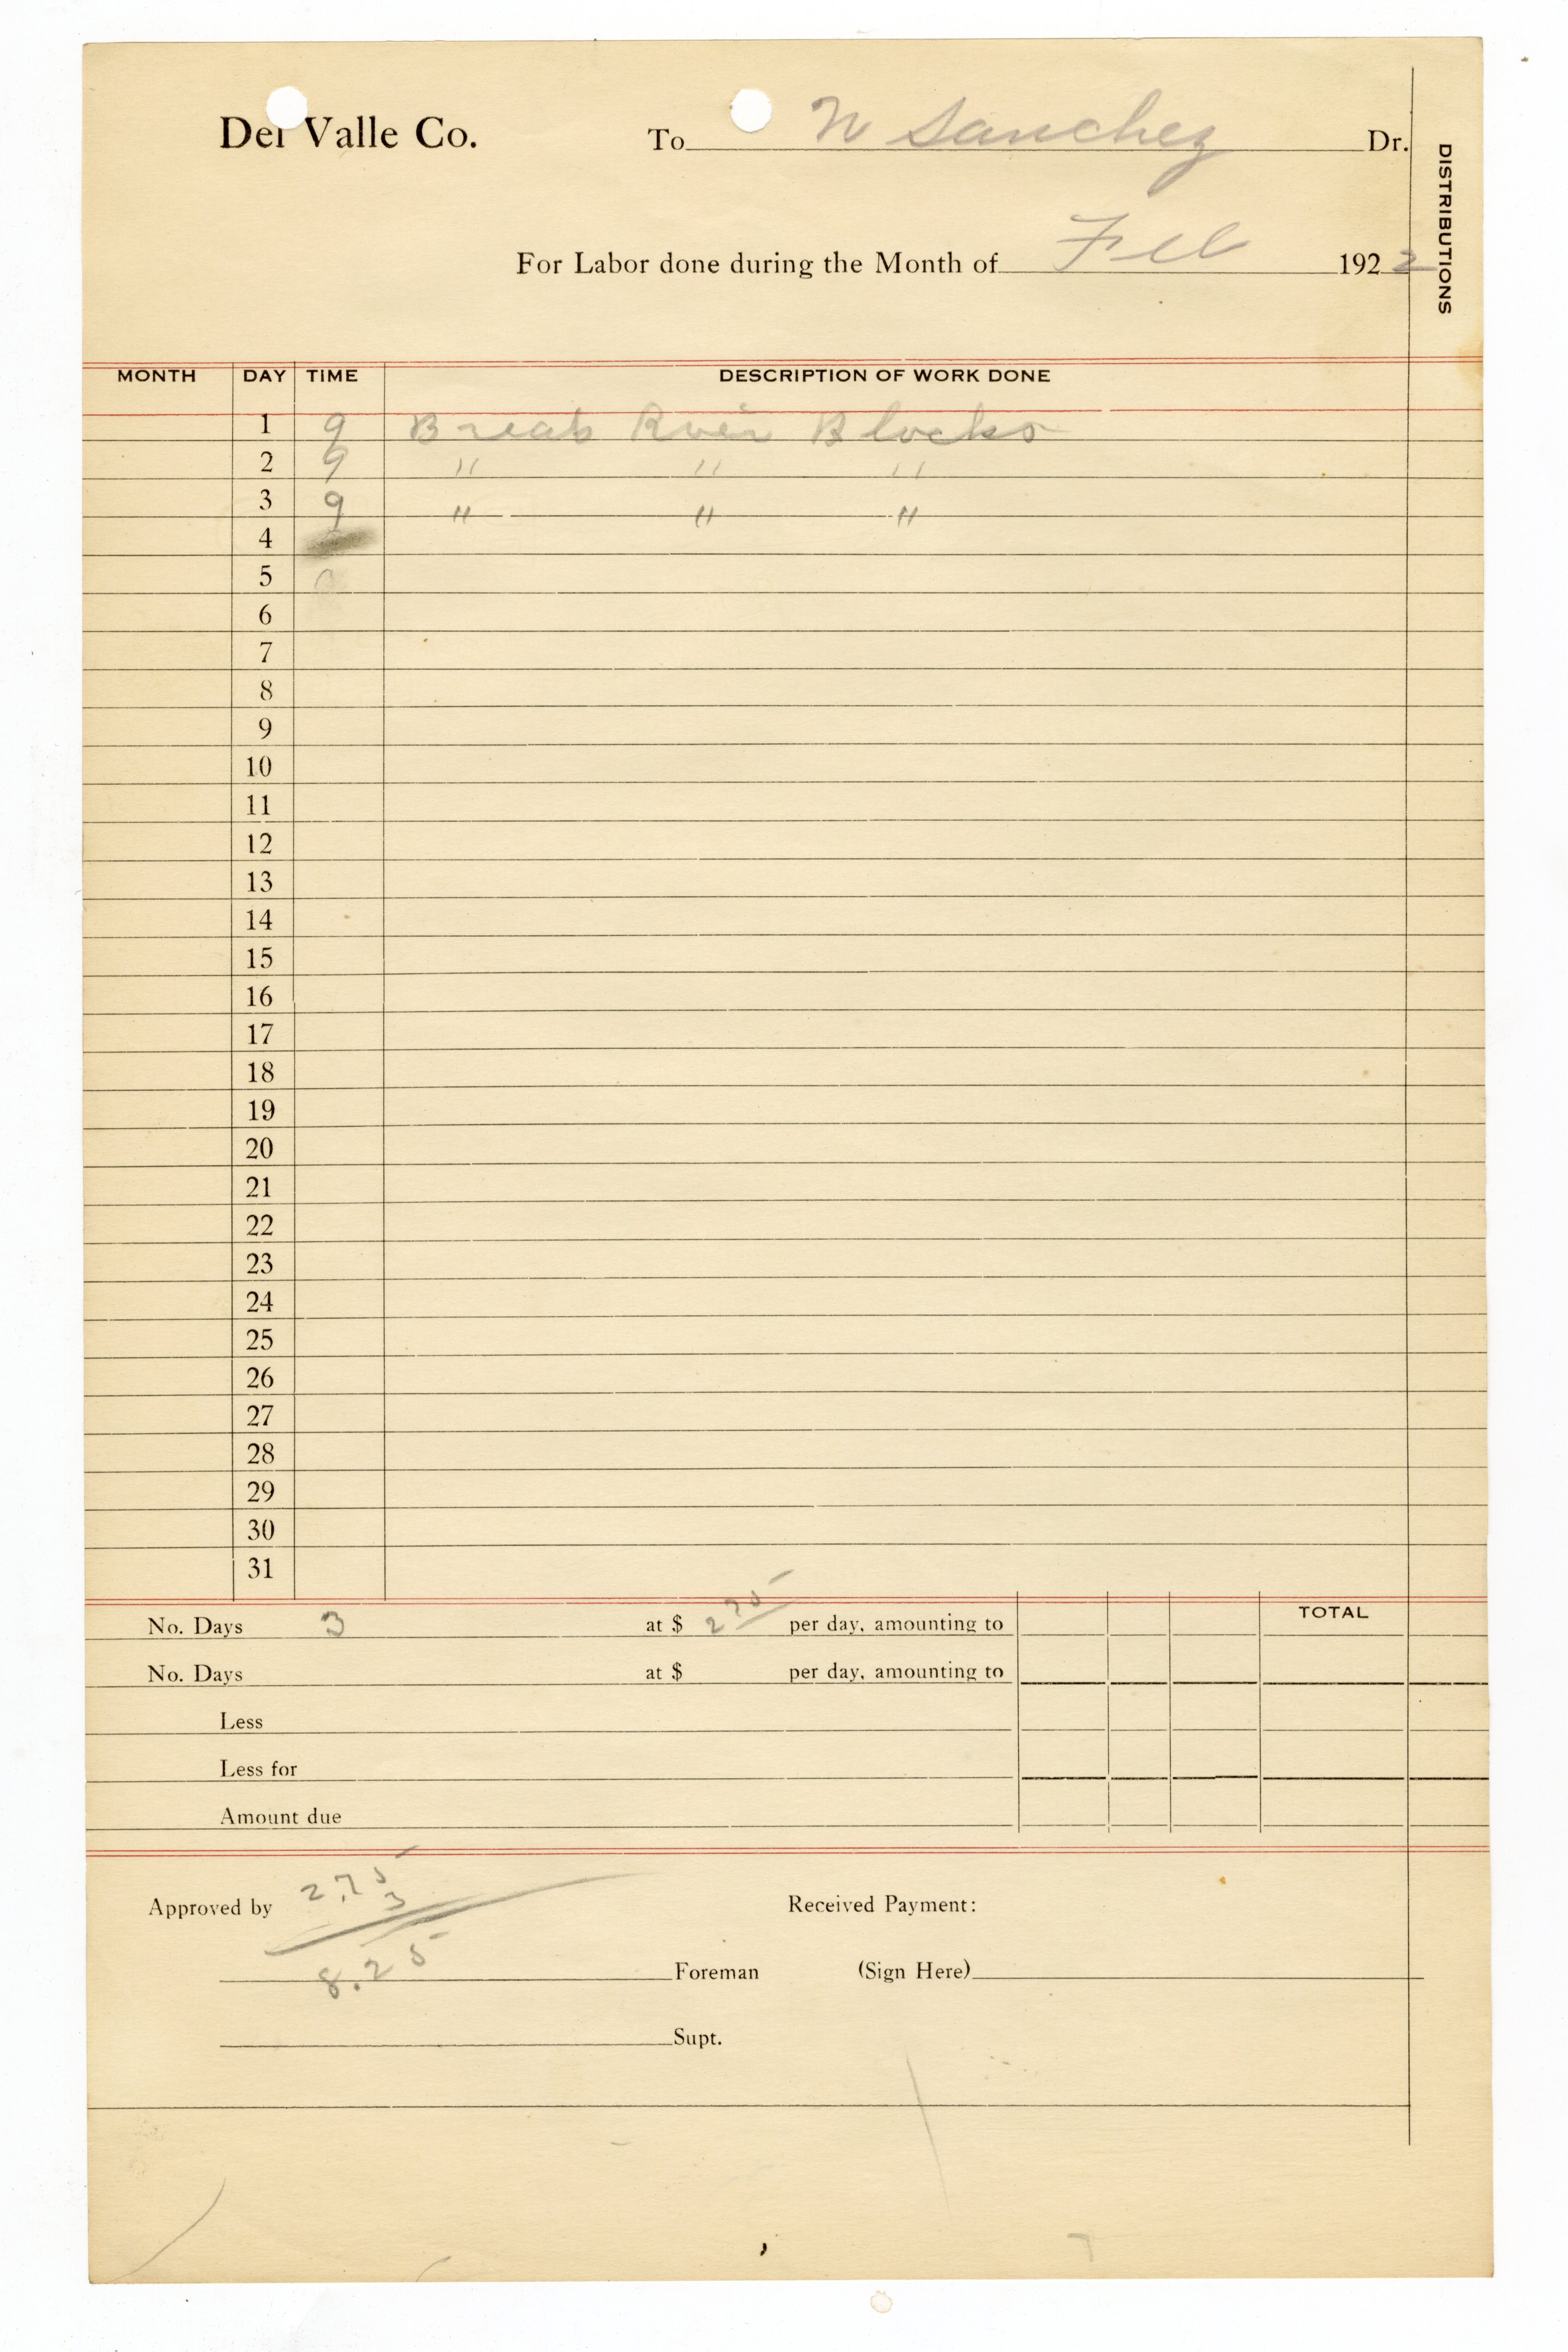 Del Valle Co. To N Sanchez Dr.
DISTRIBUTIONS
For Labor done during the Month of Feb 1922
MONTH DAY TIME DESCRIPTION OF WORK DONE
1 9 Break River Blocks
2 9 " " "
3 9 " " "
4
5
6
7
8
9
10
11
12
13
14
15
16
17
18
19
20
21
22
23
24
25
26
27
28
29
30
31
No. Days 3 at $ 2 75 per day, amounting to TOTAL
No. Days at $ per day, amounting to
Less
Less for
Amount due
2.75
3
Approved by Received Payment:
8.25
Foreman (Sign Here)
Supt.